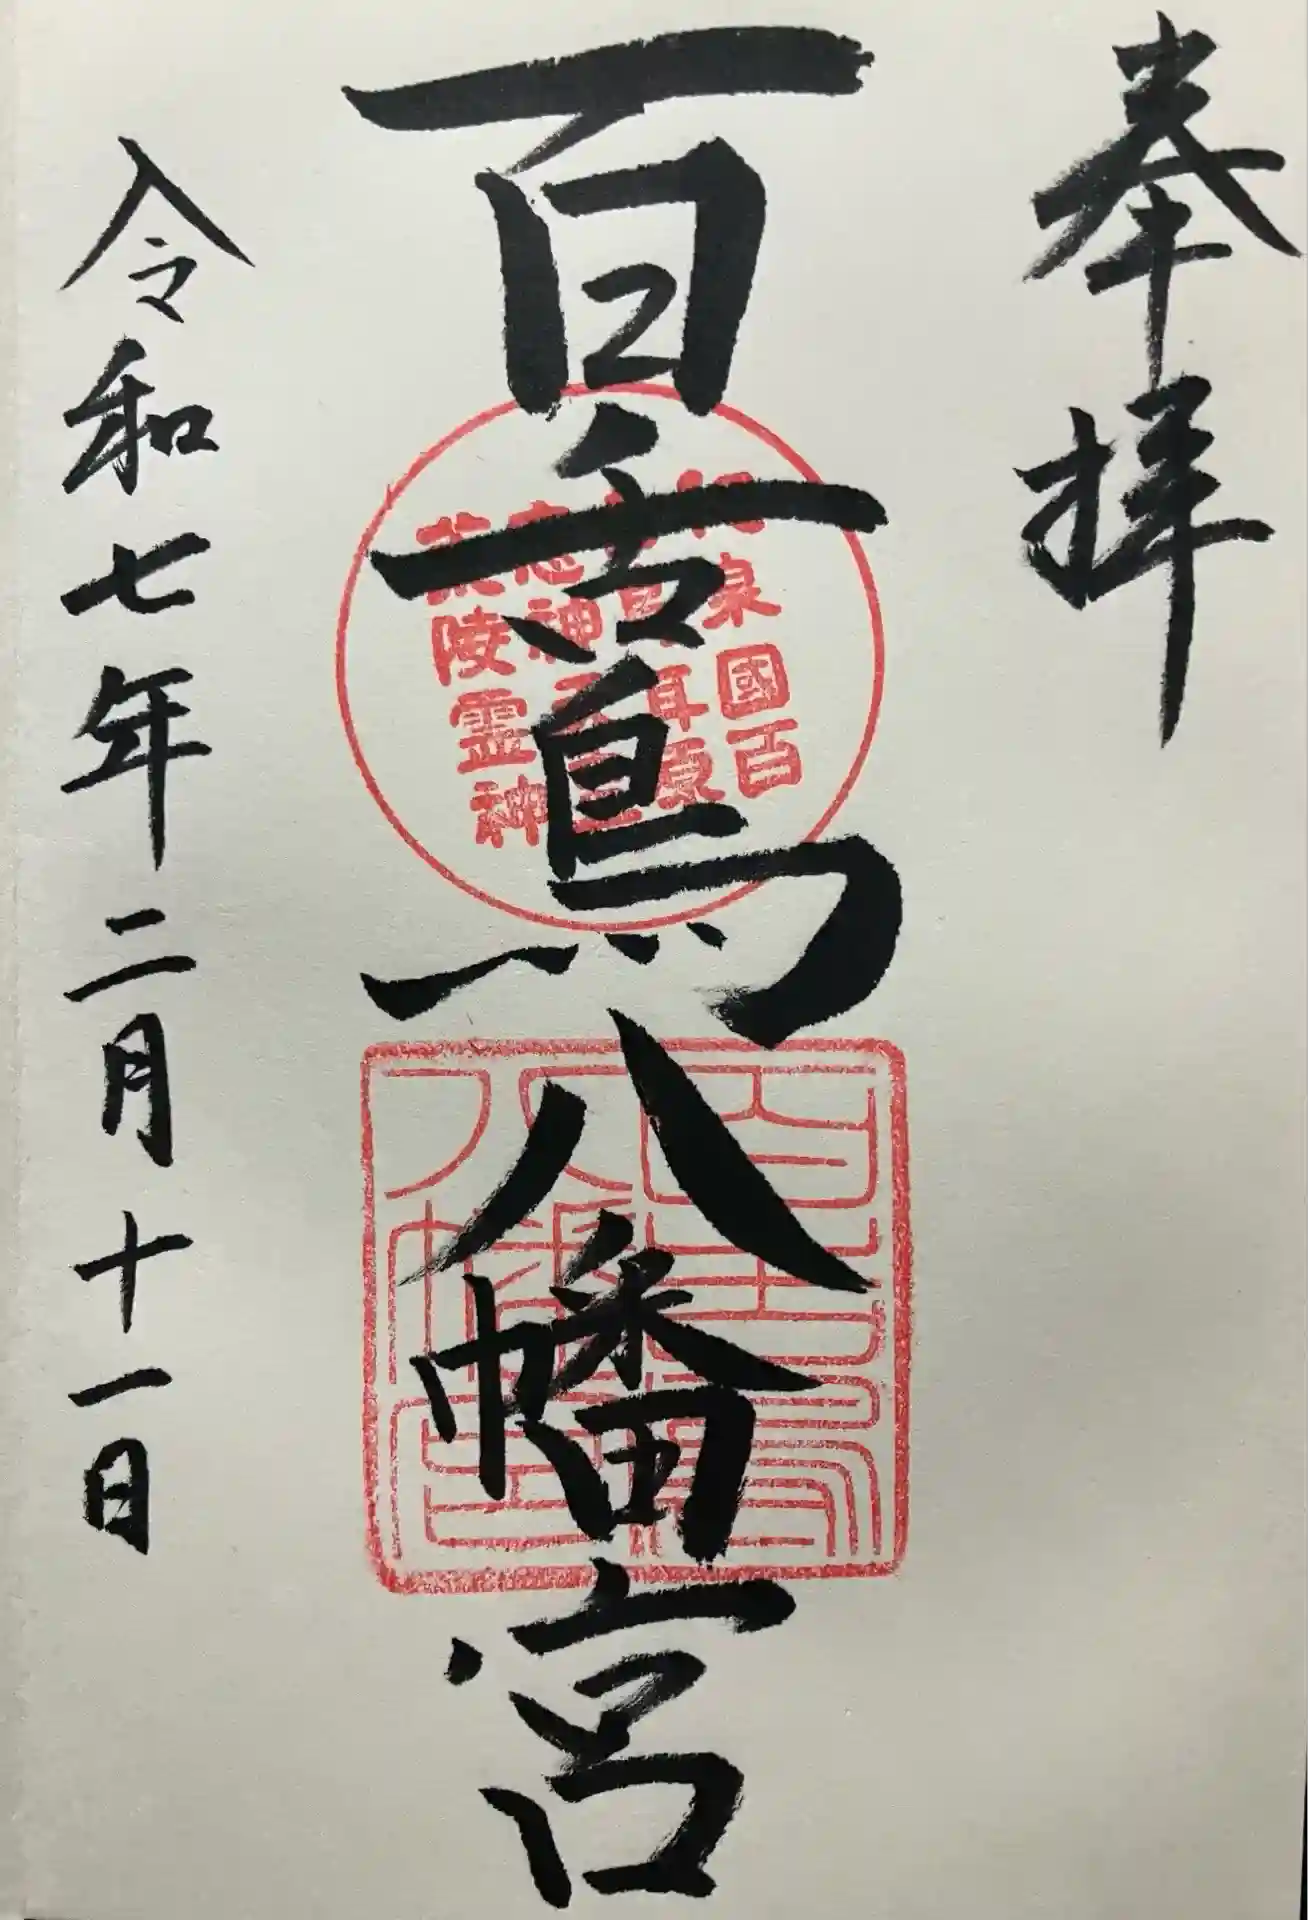 奉拝
百舌鳥八幡宮
令和七年二月十一日
泉國百
耳原
神
陵霊神
百舌鳥
八幡宮